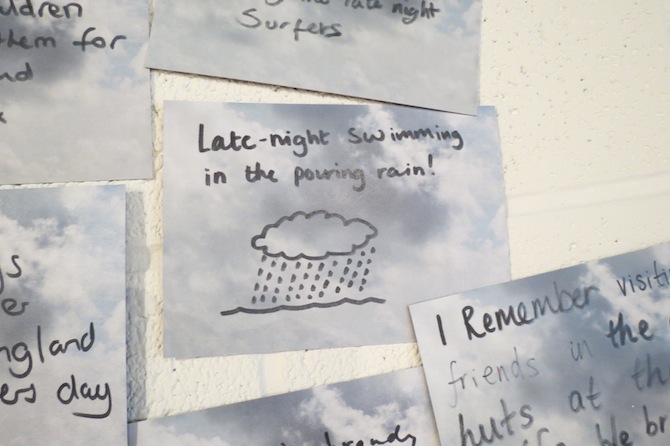 ldren
them for
nd
late night
Surfers
Late-night swimming
in the pouring rain!
s
er
ngland
ers day
I Remember visiti
friends in the
huts at th
ble b